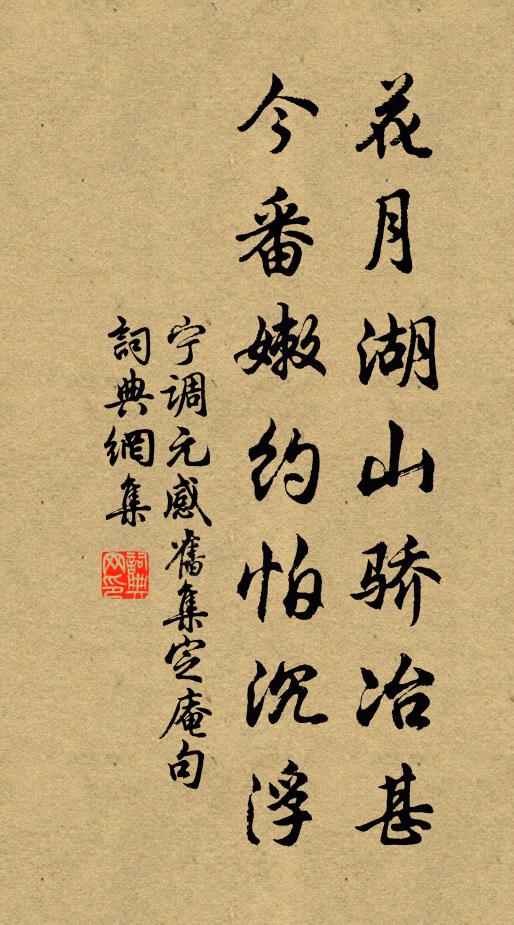 花月湖山骄冶甚
今番嫩约怕沉浮
宁调元感舊集定庵句
詞典網集
詞典网印